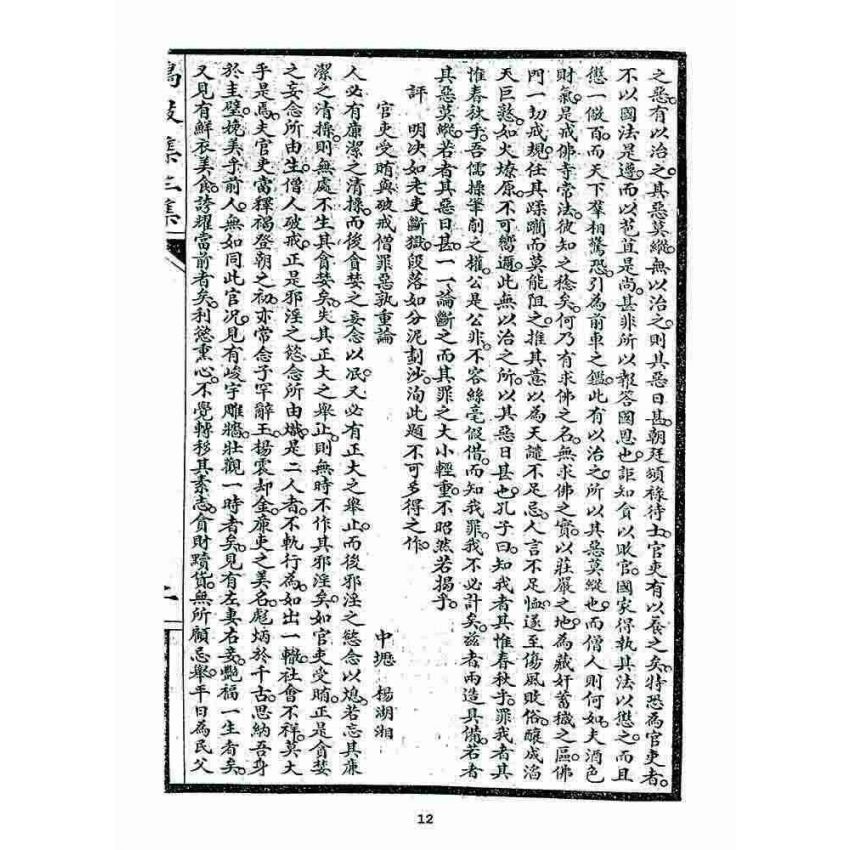 之惡有以治之。其惡莫縱。無以治之。則其惡日甚。朝廷頒祿待士。官吏有以養之矣。特恐為官吏者。
不以國法是遵。而以苞苴是尚。甚非所以報答國恩也。詎知貪以敗官。國家得執其法以懲之。而且
懲一儆百。而天下羣相驚恐。引為前車之鑑。此有以治之。所以其惡莫縱也。而僧人則何如。夫酒色
財氣。是戒佛寺常法。彼知之稔矣。何乃有求佛之名。無求佛之實。以莊嚴之地。為藏奸蓄穢之區。佛
門一切戒規。任其蹂躪而莫能阻之。推其意以為天譴不足忌。人言不足恤。遂至傷風敗俗。釀成滔
天巨憝。如火燎原。不可嚮邇。此無以治之。所以其惡日甚也。孔子曰。知我者其惟春秋乎。罪我者其
惟春秋乎。吾儒操筆削之權。公是公非。不容絲毫假借。而知我罪我。不必計矣。茲者兩造具備。若者
其惡莫縱。若者其惡日甚。一一論斷之。而其罪之大小輕重。不昭然若揭乎。
評 明決如老吏斷獄。段落如分泥劃沙。洵此題不可多得之作。
官吏受賄與破戒僧罪惡孰重論 中壢 楊湖湘
人必有廉潔之清操。而後貪婪之妄念以泯。又必有正大之舉止。而後邪淫之慾念以熄。若忘其廉
潔之清操。則無處不生其貪婪矣。失其正大之舉止。則無時不作其邪淫矣。如官吏受賄。正是貪婪
之妄念所由生。僧人破戒。正是邪淫之慾念所由熾。是二人者。不軌行為。如出一轍。社會不祥。莫大
乎是焉。夫官吏當釋褐登朝之初。亦常念子罕辭玉。楊震却金。廉吏之美名。彪炳於千古。思納吾身
於圭璧。挽美乎前人。無如同此官况。見有峻宇雕牆。壯觀一時者矣。見有左妻右妾。艷福一生者矣。
又見有鮮衣美食。誇耀當前者矣。利慾熏心。不覺轉移其素志。貪財黷貨。無所顧忌。舉平日為民父
集二集
12